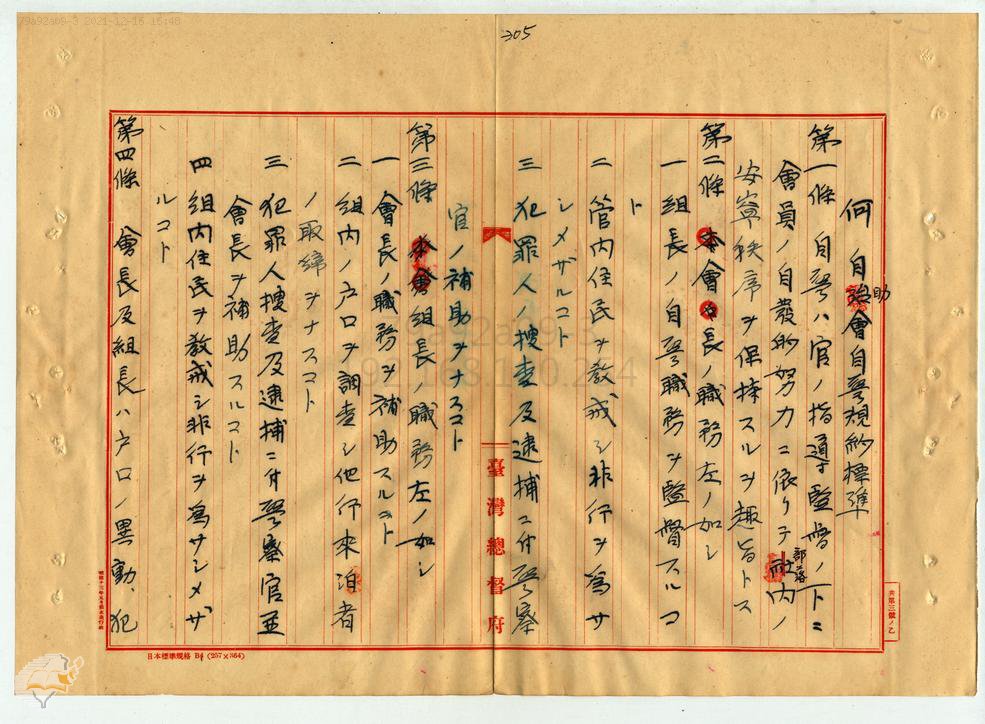 79a92a09-3 2021-12-16 15:48
305
何 自助會自警規約標準
第一條 自警ハ官ノ指導監督ノ下ニ
會員ノ自發的努力ニ依リテ部落内ノ
安寧秩序ヲ保持スルヲ趣旨トス
第二條 會長ノ職務左ノ如シ
一 組長ノ自警職務ヲ監督スルコ
ト
二 管内住民ヲ教戒シ非行ヲ為サ
シメザルコト
三 犯罪人ノ搜査及逮捕ニ付警察
官ノ補助ヲナスコト
第三條 組長ノ職務左ノ如シ
一 會長ノ職務ヲ補助スルコト
二 組内ノ戸口ヲ調査シ他行來泊者
ノ取締ヲナスコト
三 犯罪人搜査及逮捕ニ付警察官並
會長ヲ補助スルコト
四 組内住民ヲ教戒シ非行ヲ為サシメザ
ルコト
第四條 會長及組長ハ戸口ノ異動、犯
臺灣總督府
日本標準規格 B4 (257×364)